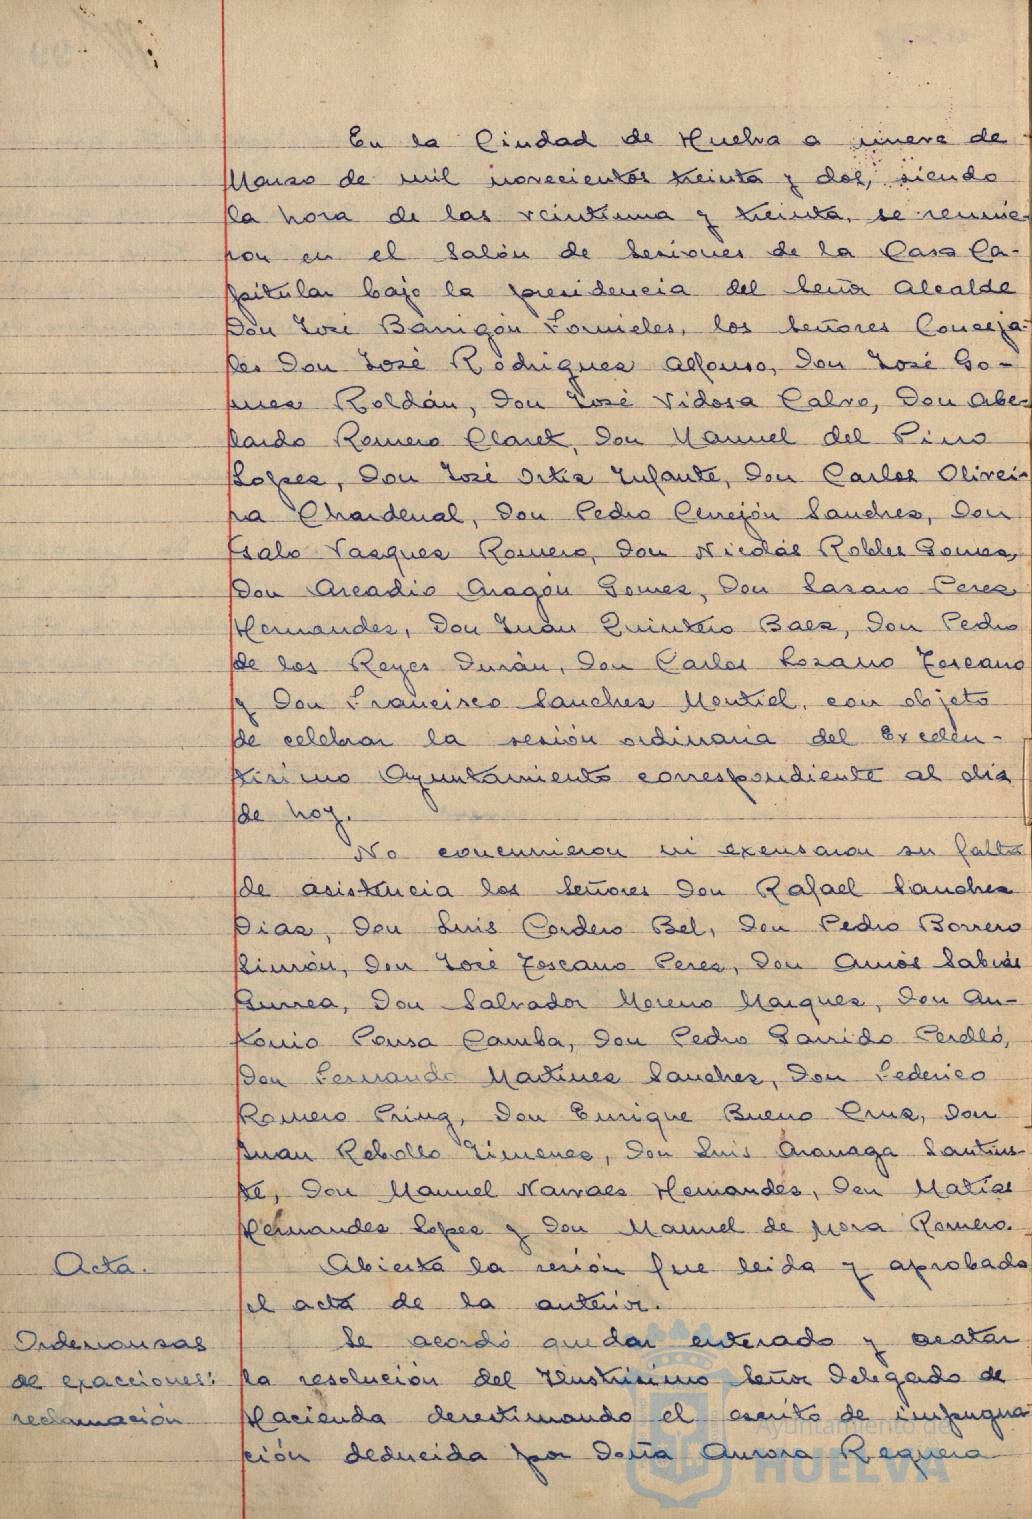 En la Ciudad de Huelva a nueve de
Marzo de mil novecientos treinta y dos, siendo
la hora de las veintiuna y treinta, se reunie-
ron en el Salón de Sesiones de la Casa Ca-
pitular bajo la presidencia del Señor Alcalde
Don José Barrigón Fornieles, los Señores Conceja-
les Don José Rodrigues Alfonso, Don José Go-
mes Roldán, Don José Vidosa Calvo, Don Abe-
lardo Romero Claret, Don Manuel del Pino
Lopes, Don José Ortiz Infante, Don Carlos Olivei-
ra Chardenal, Don Pedro Cerrejón Sanches, Don
Galo Vasques Romero, Don Nicolás Robles Gomes,
Don Arcadio Aragón Gomes, Don Lasaro Peres
Hernandes, Don Juan Quintero Baez, Don Pedro
de los Reyes Durán, Don Carlos Lozano Toscano
y Don Francisco Sanches Montiel, con objeto
de celebrar la sesión ordinaria del Excelen-
tisimo Ayuntamiento correspondiente al dia
de hoy.
No concurrieron ni excusaron su falta
de asistencia los Señores Don Rafael Sanches
Dias, Don Luis Cordero Bel, Don Pedro Borrero
Limón, Don José Toscano Peres, Don Amós Sabrás
Gurrea, Don Salvador Moreno Marques, Don An-
tonio Pousa Camba, Don Pedro Garrido Perelló,
Don Fernando Martines Sanches, Don Federico
Romero Pring, Don Enrique Bueno Cruz, Don
Juan Rebollo Jimenes, Don Luis Aranaga Santius-
te, Don Manuel Narvaes Hernandes, Don Matías
Hernandes Lopes y Don Manuel de Mora Romero.
Acta.
Abierta la sesión fue leida y aprobada
el acta de la anterior.
Ordenansas
de exacciones:
reclamación
Se acordó quedar enterado y acatar
la resolución del Ilustrisimo Señor Delegado de
Hacienda desestimando el escrito de impugna-
ción deducida por Doña Aurora Requena
Ayuntamiento de
HUELVA